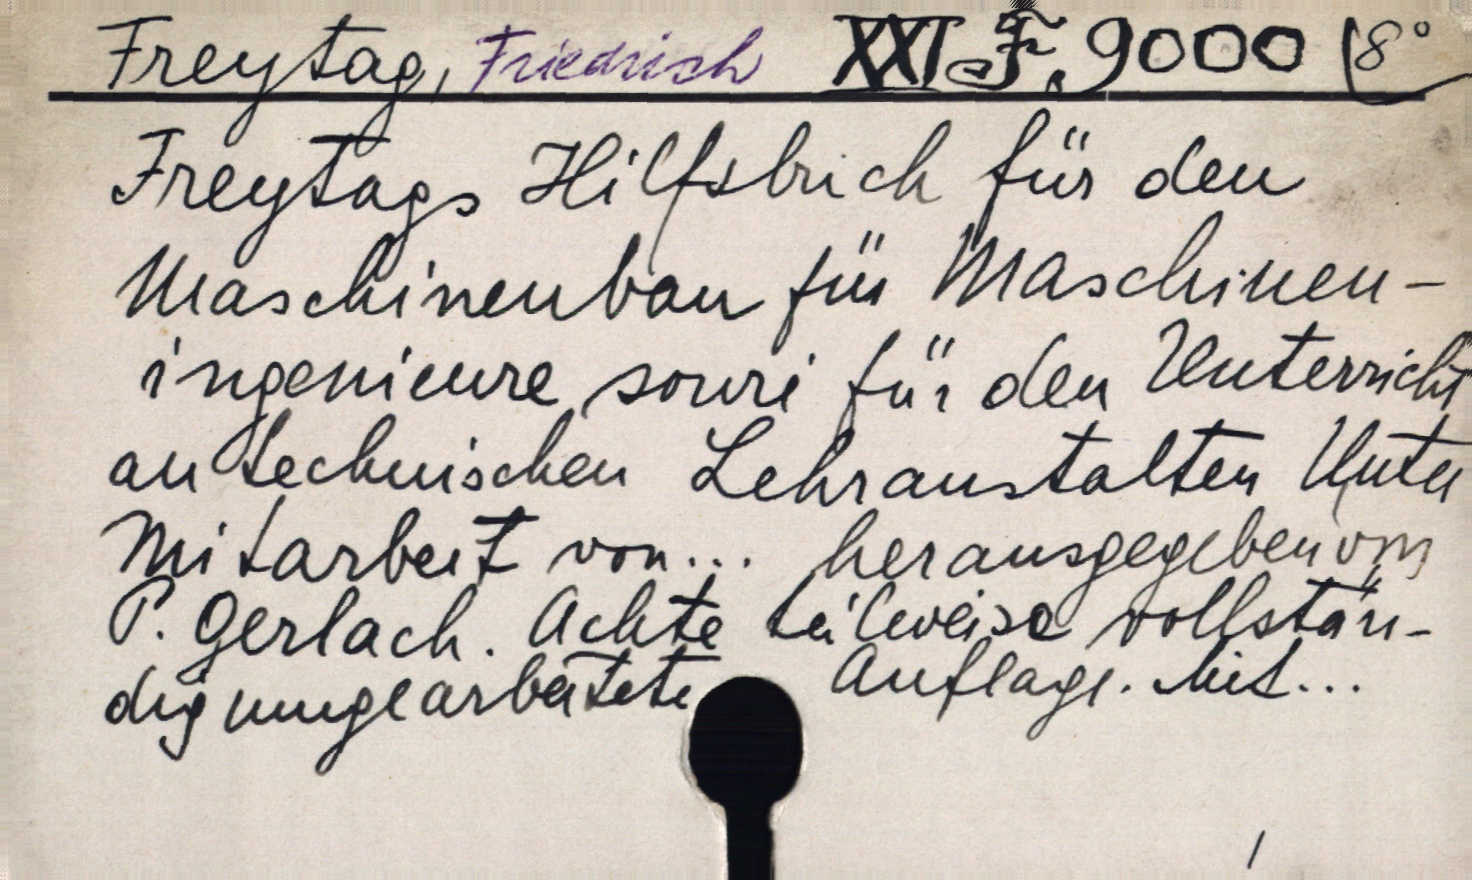 Freytag, Friedrich XXI. F. 9000 (8°
Freytags Hilfsbuch für den
Maschinenbau für Maschinen-
ingenieure sowie für den Unterricht
an technischen Lehranstalten Unter
Mitarbeit von... herausgegeben von
P. Gerlach. Achte teilweise vollstän-
dig umgearbeitete Auflage. Mit...
/